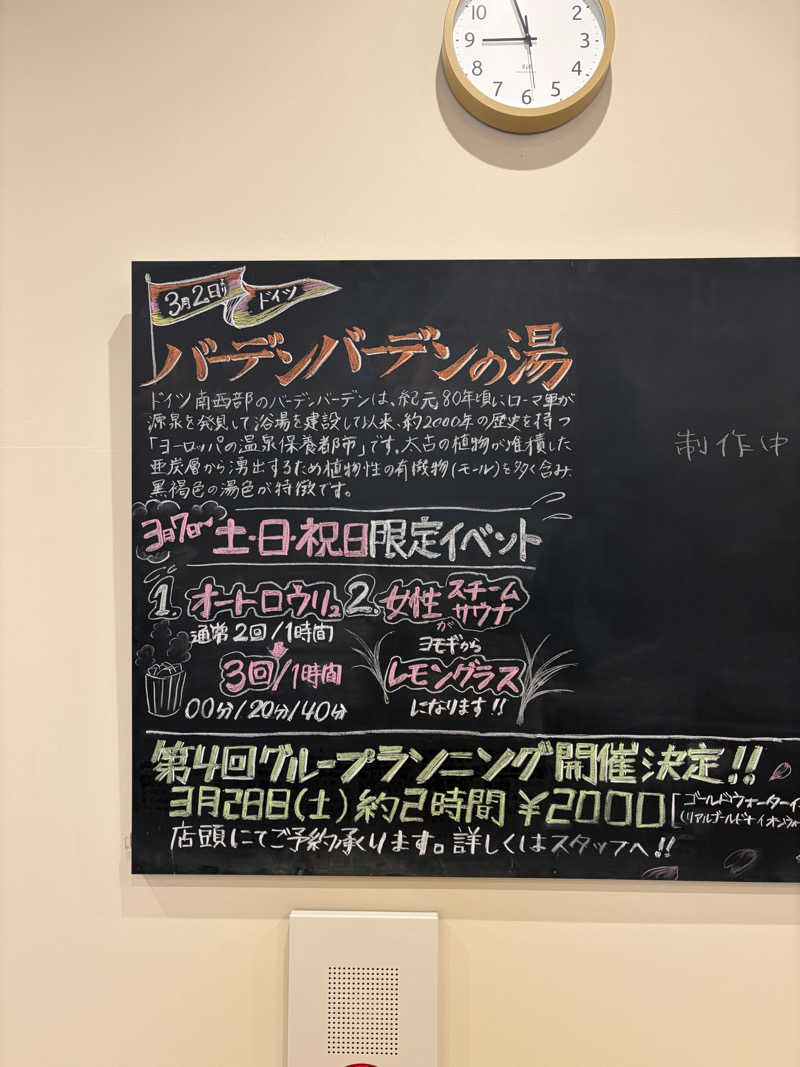 10 2
9 3
8 4
7 6 5
3月2日より ドイツ
バーデンバーデンの湯
ドイツ南西部のバーデンバーデンは、紀元80年頃にローマ軍が
源泉を発見して浴場を建設して以来、約2000年の歴史を持つ
「ヨーロッパの温泉保養都市」です。太古の植物が堆積した
亜炭層から湧出するため植物性の有機物(モール)を多く含み、
黒褐色の湯色が特徴です。
3月7日~ 土・日・祝日限定イベント
1. オートロウリュ
通常2回/1時間
3回/1時間
00分/20分/40分
2. 女性スチームサウナが
ヨモギから
レモングラス
になります!!
第4回グループランニング開催決定!!
3月28日(土)約2時間 ¥2000 [ゴールドウォーターイ
(リアルゴールド+イオンウォー
店頭にてご予約承ります。詳しくはスタッフへ!!
制作中